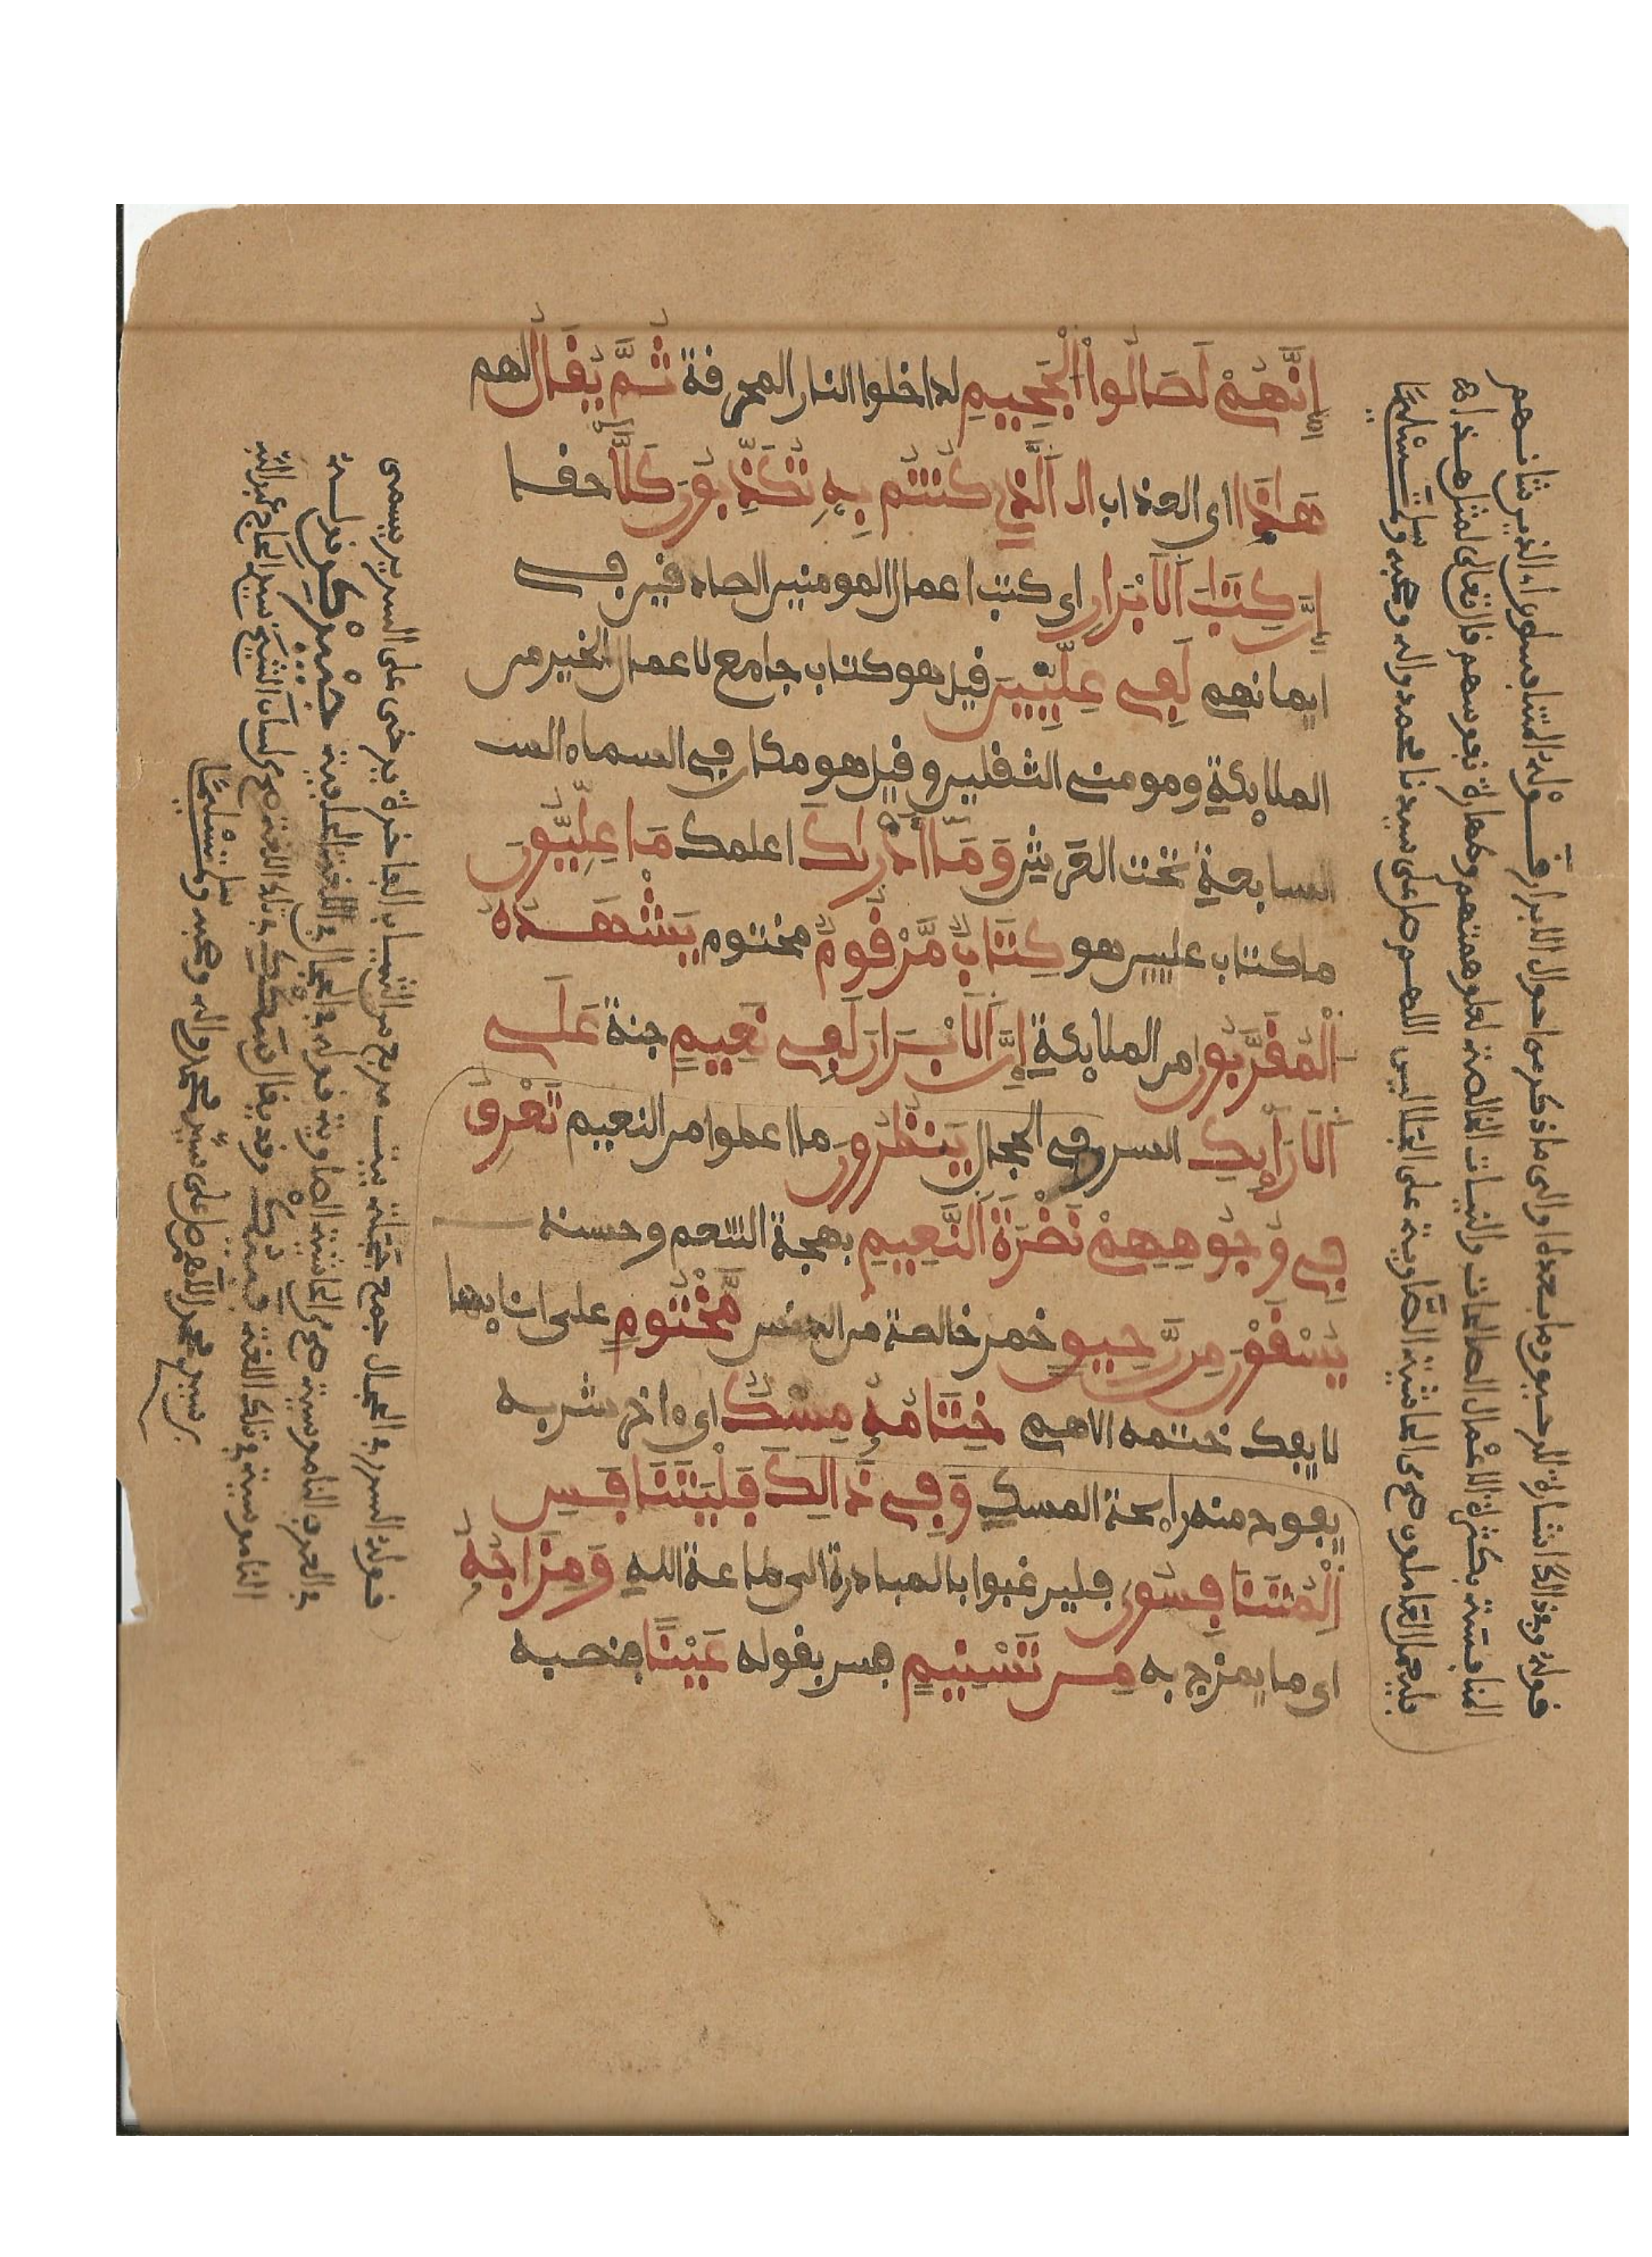 إِنَّهُمْ لَصَالُوا۟ الْجَحِيمِ لداخلوا النار المحرقة ثُمَّ يُقَالُ لهم
هَٰذَا اى العذاب الَّذِي كُنتُم بِهِ تُكَذِّبُونَ كَلَّا حقا
إِنَّ كِتَابَ الَابْرَارِ اى كتب اعمال المومنين الصادقين في
ايمانهم لَفِي عِلِّيِّينَ قيل هو كتاب جامع لاعمال الخير من
الملايكة ومومني الثقلين وقيل هو مكان في السماء الس
السابعة تحت العرش وَمَا أَدْرَىٰكَ اعلمك مَا عِلِّيُّونَ
ما كتاب عليين هو كِتَابٌ مَّرْقُومٌ مختوم يَشْهَدُهُ
الْمُقَرَّبُونَ من الملايكة إِنَّ الَابْرَارَ لَفِي نَعِيمٍ جنة عَلَى
الَارَايِكِ السرر في الحجال يَنظُرُونَ ما اعطوا من النعيم تَعْرِفُ
فِي وُجُوهِهِمْ نَضْرَةَ النَّعِيمِ بهجة التنعم وحسنه
يُسْقَوْنَ مِن رَّحِيقٍ خمر خالصة من الدنس مَّخْتُومٍ على انايها
لا يفك ختمه الا هم خِتَامُهُ مِسْكٌ اى ءاخر شربه
يفوح منه رايحة المسك وَفِي ذَٰلِكَ فَلْيَتَنَافَسِ
الْمُتَنَافِسُونَ فليرغبوا بالمبادرة الى طاعة الله وَمِزَاجُهُ
اى ما يمزج به مِن تَسْنِيمٍ فسر بقوله عَيْنًا فنصبه
قوله وفي ذلك اشارة للرحيق وما بعده او الى ما ذكر من احوال الابرار قوله المتنافسون اى الذين شانهم
المنافسة بكثرة الاعمال الصالحات والنيات الخالصة لعلو همتهم وطهارة نفوسهم قال تعالى لمثل هذا
فليعمل العاملون على الحاشية الصاوية على الجلالين اللهم صل على سيدنا محمد واله وصحبه وسلم تسليما
قوله السرر في الحجال جمع حجلة بيت مربع من الثياب الفاخرة يرخى على السرير يسمى
في العرف الناموسية الحاشية الصاوية قوله في الحجال
الناموسية
اللهم صل على سيدنا محمد واله وصحبه وسلم تسليما